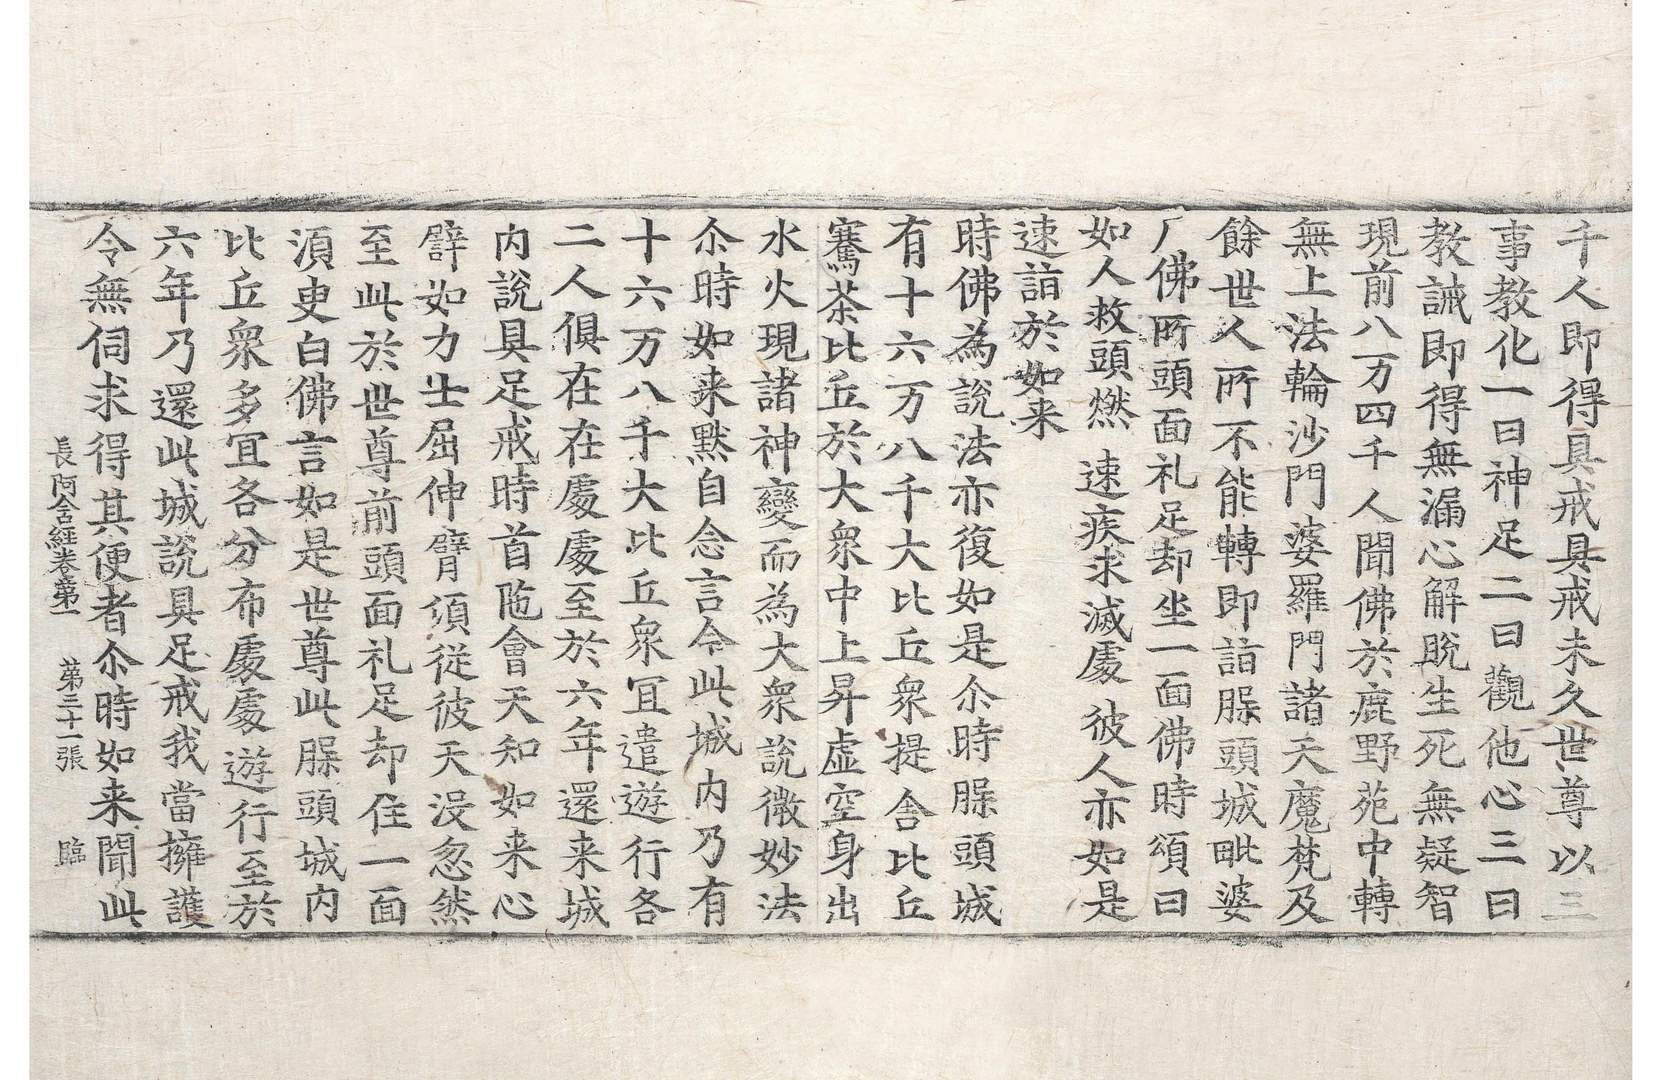 千人即得具戒具戒未久世尊以三
事教化一曰神足二曰觀他心三曰
教誡即得無漏心解脫生死無疑智
現前八万四千人聞佛於鹿野苑中轉
無上法輪沙門婆羅門諸天魔梵及
餘世人所不能轉即詣脲頭城毗婆
尸佛所頭面礼足却坐一面佛時頌曰
如人救頭燃 速疾求滅處 彼人亦如是
速詣於如来
時佛為說法亦復如是尒時脲頭城
有十六万八千大比丘衆提舍比丘
騫茶比丘於大衆中上昇虛空身出
水火現諸神變而為大衆說微妙法
尒時如来默自念言今此城内乃有
十六万八千大比丘衆冝遣遊行各
二人俱在在處處至於六年還来城
内說具足戒時首陁會天知如来心
譬如力士屈伸臂須從彼天没忽然
至此於世尊前頭面礼足却住一面
須臾白佛言如是世尊此脲頭城内
比丘衆多冝各分布處處遊行至於
六年乃還此城說具足戒我當擁護
令無伺求得其便者尒時如来聞此
長阿含経卷第一 第三十一張 臨